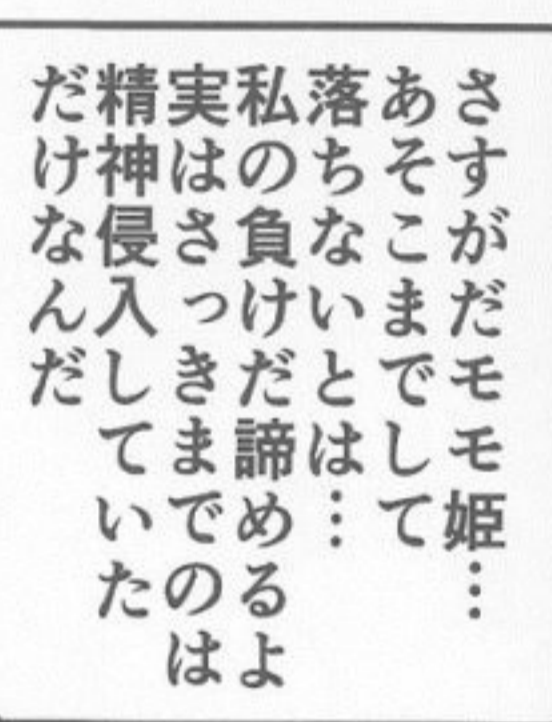 さすがだモモ姫…
あそこまでして
落ちないとは…
私の負けだ諦めるよ
実はさっきまでのは
精神侵入していた
だけなんだ